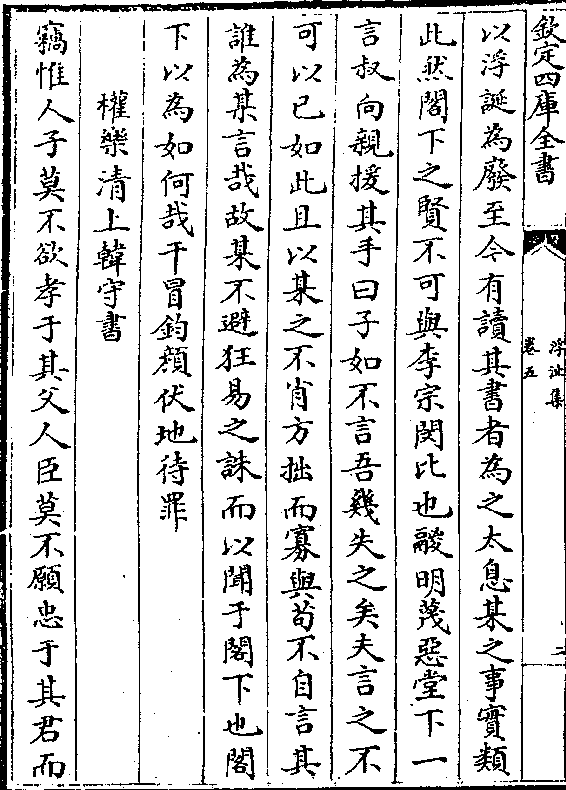 欽定四庫全書
浮沚集
卷五
二
以浮誕為廢至今有讀其書者為之太息某之事實類
此然閤下之賢不可與李宗閔比也鬷明蔑惡堂下一
言叔向親援其手曰子如不言吾幾失之矣夫言之不
可以已如此且以某之不肖方拙而寡與茍不自言其
誰為某言哉故某不避狂易之誅而以聞于閤下也閤
下以為如何哉干冒鈞顔伏地待罪
權樂清上韓守書
竊惟人子莫不欲孝于其父人臣莫不願忠于其君而